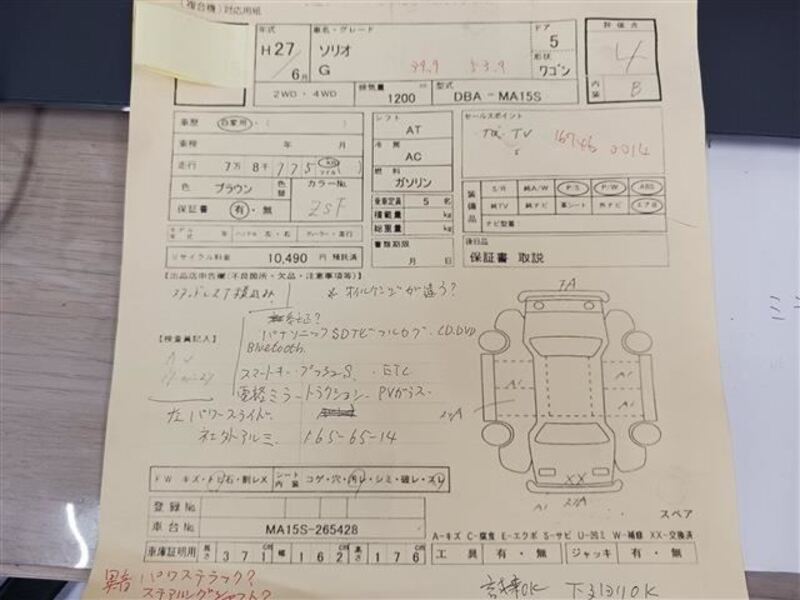 (複合機) 対応用紙
年式 車名・グレード ドア 評価点
H27 ソリオ 5 4
6月 G 39.9 53.9 形状 ワゴン 内装 B
2WD・4WD 排気量 1200 cc 型式 DBA-MA15S
車歴 自家用・( ) シフト AT セールスポイント
車検 年 月 冷房 AC TV
走行 7万8千775 km マイル ( ) 燃料 ガソリン
色 ブラウン 色替 カラーNo. 乗車定員 5 名 装備品 S/R 純A/W P/S P/W ABS
保証書 有・無 ZSF 積載量 kg 純TV 純ナビ 革シート 外ナビ エアB
総重量 kg ナビ型番
モデル 年式 ハンドル 右・左 ディーラー・並行 書類期限 月 日 後日品
リサイクル料金 10,490 円 預託済 保証書 取説
【出品店申告欄(不良箇所・欠品・注意事項等)】
スタッドレス積込み ※オイルゲージが違う?
パナソニックSDナビ フルセグ・CD.DVD
Bluetooth.
【検査員記入】
スマートキー・プッシュS.・ETC
電格ミラー トラクション PVガラス
左パワースライド
社外アルミ 165-65-14
7A
A1 A1
A1
XX
A1
スペア
FW キズ・トビ石・割レX シート内装 コゲ・穴・汚レ・シミ・破レ・スレ
登録No.
車台No. MA15S-265428
A-キズ C-腐食 E-エクボ S-サビ U-凹ミ W-補修 XX-交換済
車庫証明用 長さ 371 cm 幅 162 cm 高さ 176 cm 工具 有・無 ジャッキ 有・無
異音 パワステラック?
ステアリングシャフト?
試乗OK 下廻りOK